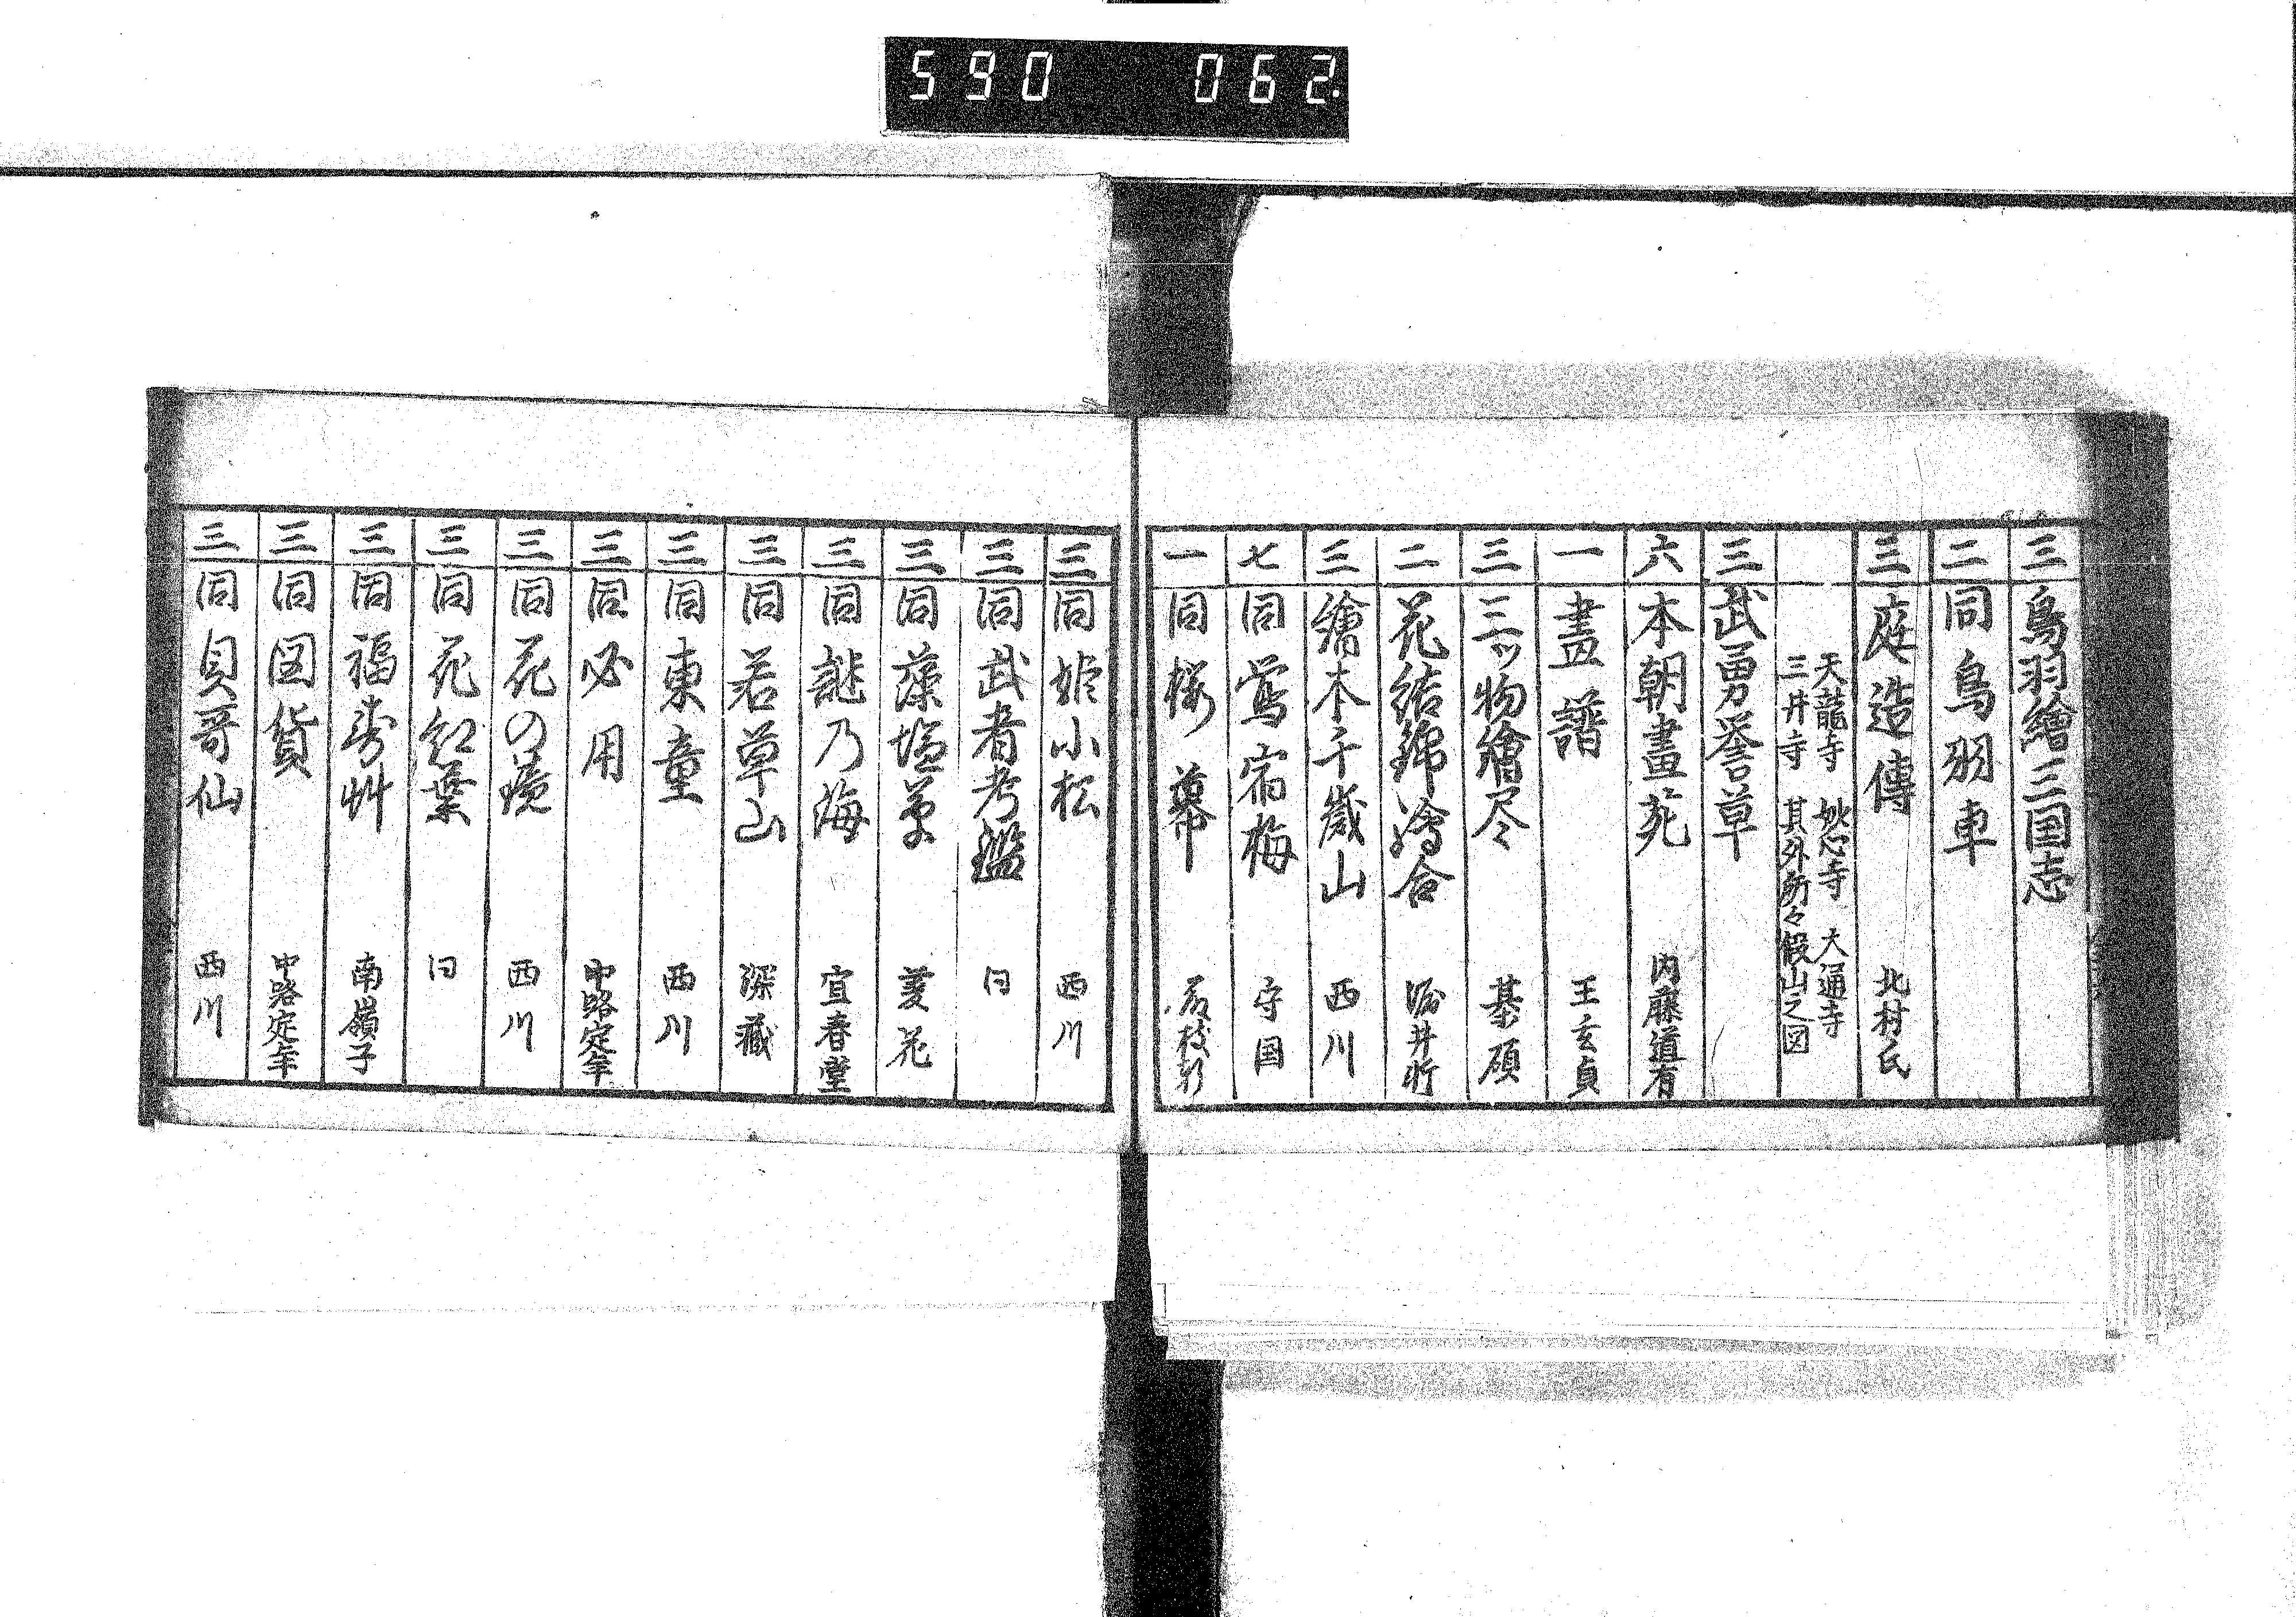 590 062
三 鳥羽繪三国志
二 同鳥羽車
三 庭造傳 北村氏
天龍寺 妙心寺 大通寺
三井寺 其外所々假山之図
三 武勇誉草
六 本朝畫苑 内藤道有
一 畫譜 王玄貞
三 三ツ物繪尽 碁碩
二 花結錦繪合
三 繪本千歳山 西川
七 同鶯宿梅 守国
一 同桜幕
三 同姫小松 西川
三 同武者考鑑 同
三 同藻塩草 菱花
三 同謎乃海 宜春堂
三 同若草山 深蔵
三 同東童 西川
三 同必用 中路定年
三 同花の鏡 西川
三 同花紅葉 同
三 同福寿艸 南嶺子
三 同図貨 中路定年
三 同貝哥仙 西川